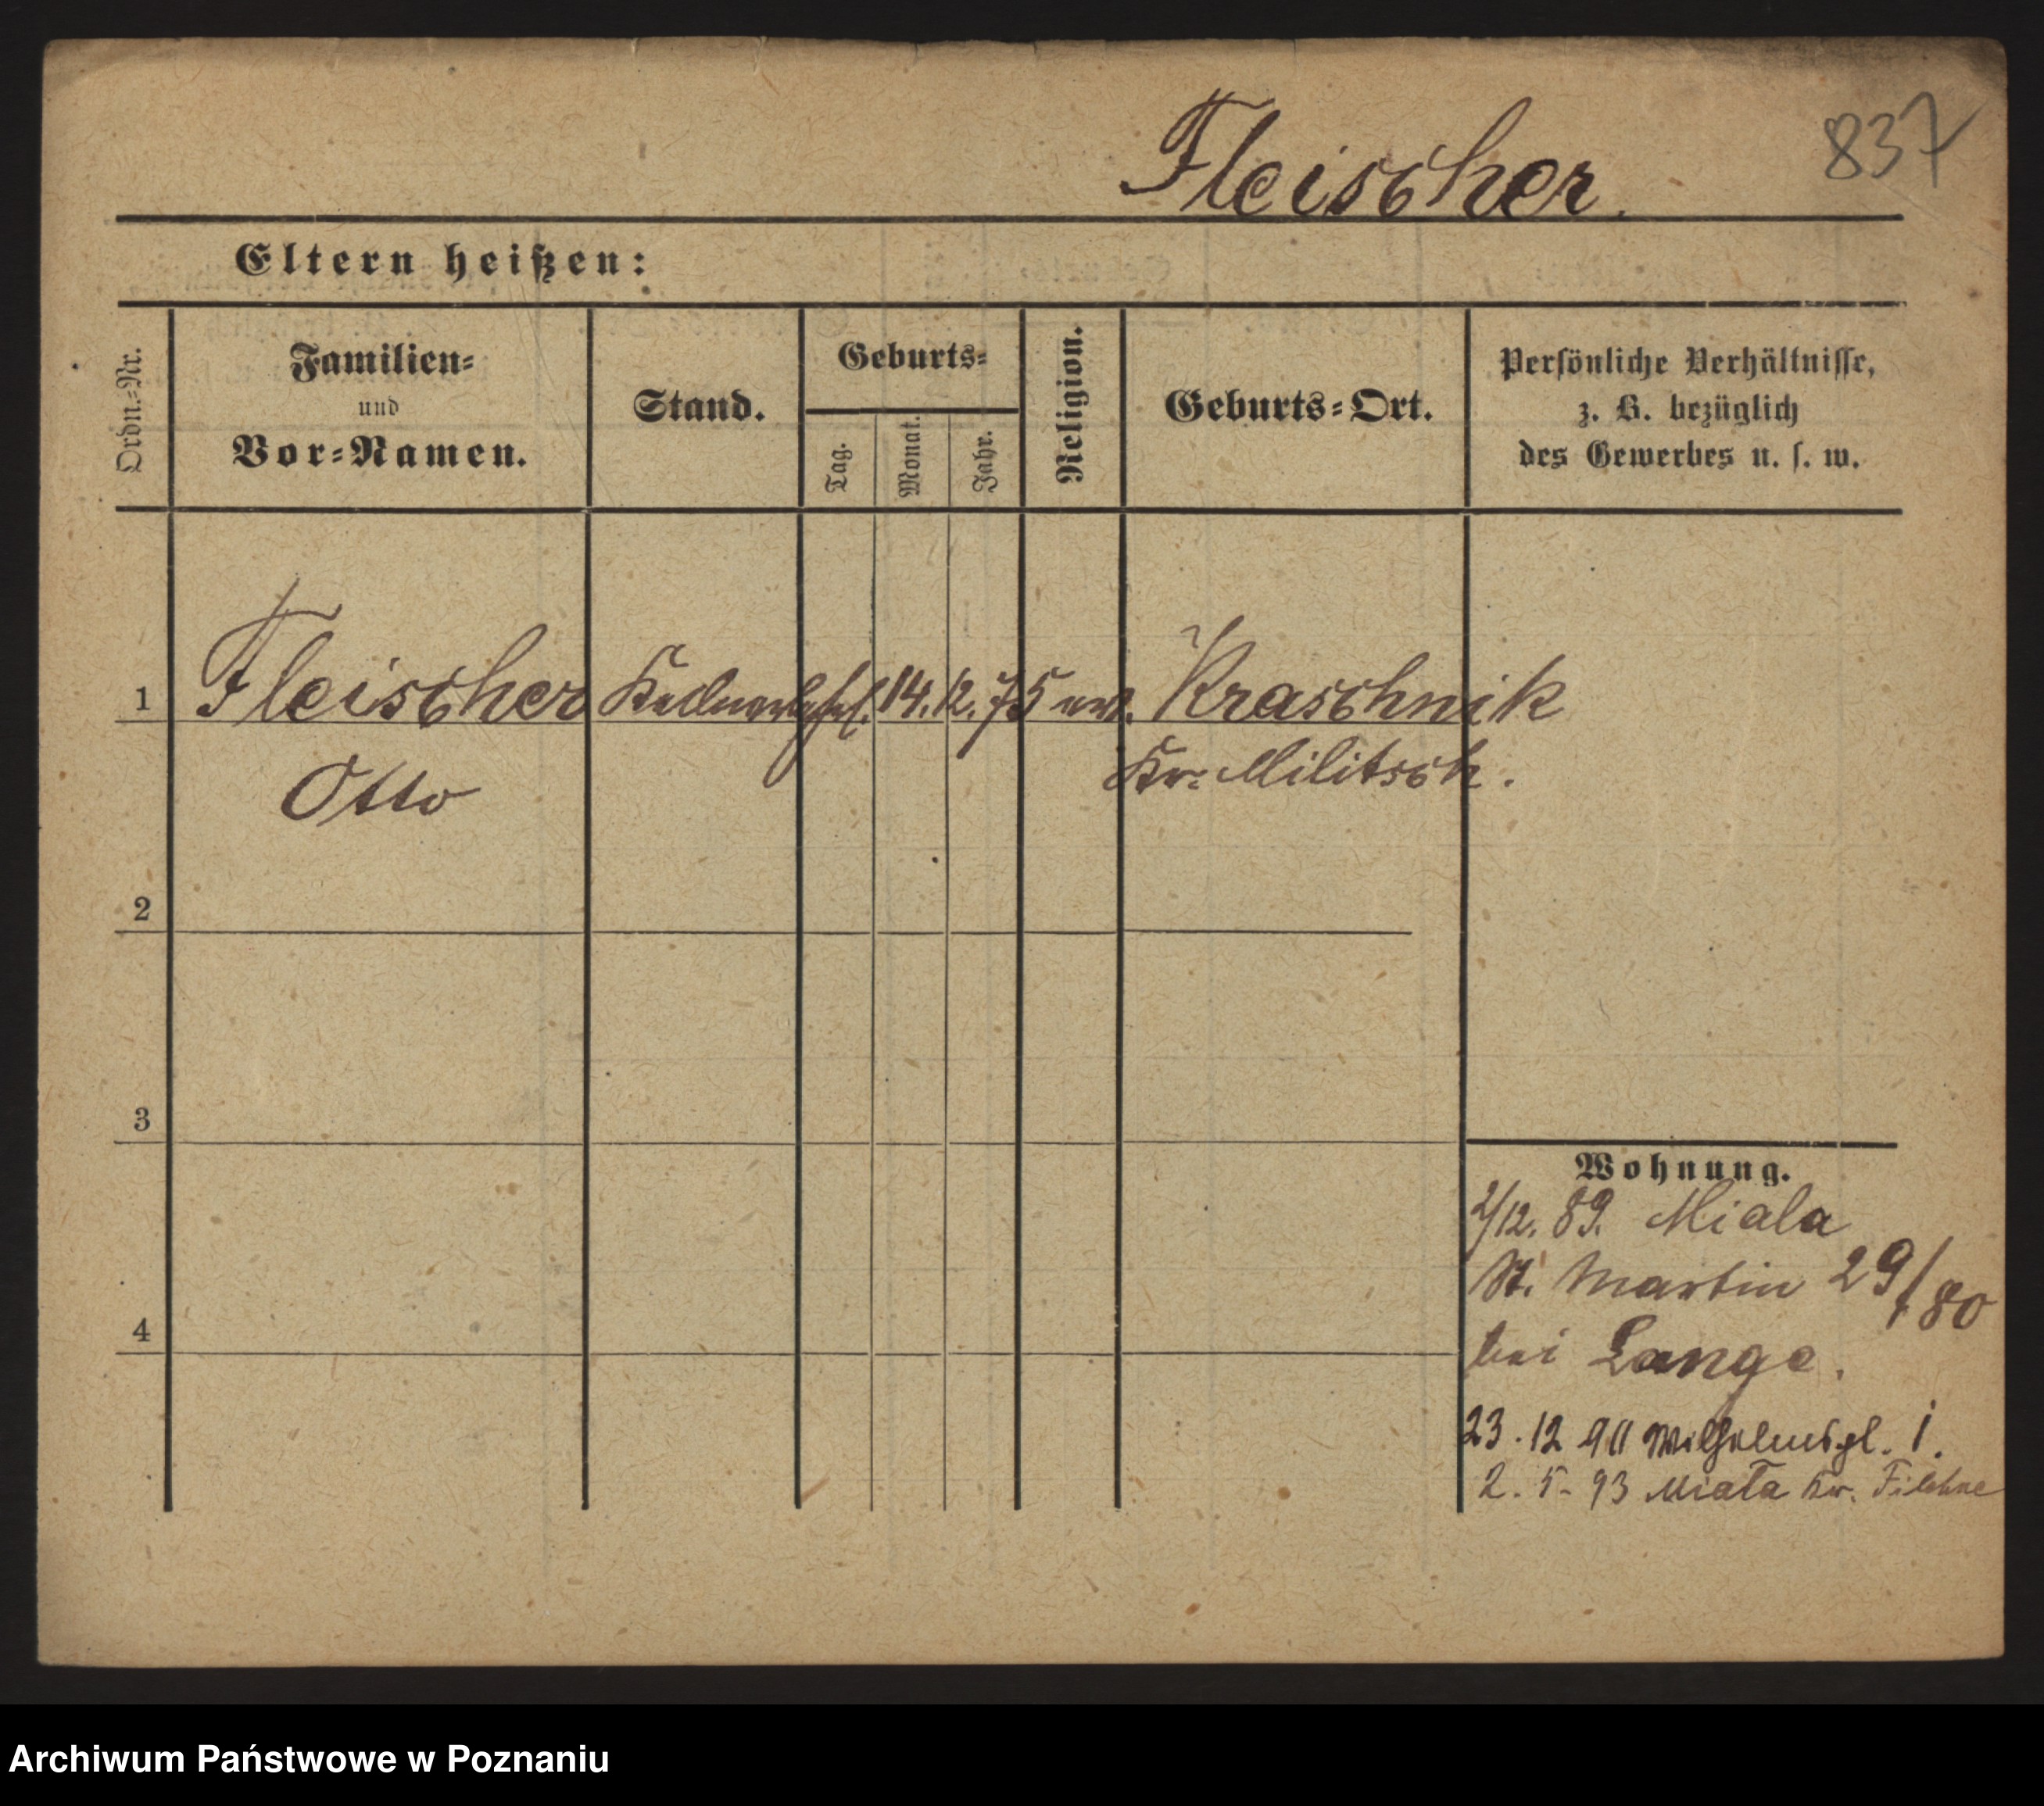 837
Fleischer.
Eltern heißen:
Ordn.-Nr.
Familien-
und
Vor-Namen.
Stand.
Geburts-
Tag.
Monat.
Jahr.
Religion.
Geburts-Ort.
Persönliche Verhältnisse,
z. B. bezüglich
des Gewerbes u. s. w.
1 Fleischer 14. 12. 75 Kraschnik
Otto Kr. Militsch.
2
3
4
Wohnung.
2/12. 89. Miala
St. Martin 29/80
bei Lange.
23. 12 90 Wilhelmspl. 1.
2. 5. 93 Miala Kr. Filehne
Archiwum Państwowe w Poznaniu